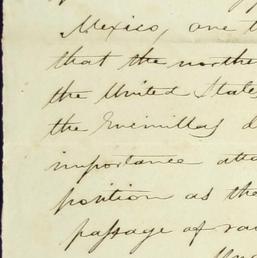 Mexico, one t
that the northe
the United States
the Enemillas d
importance atta
position as the
passage of rai